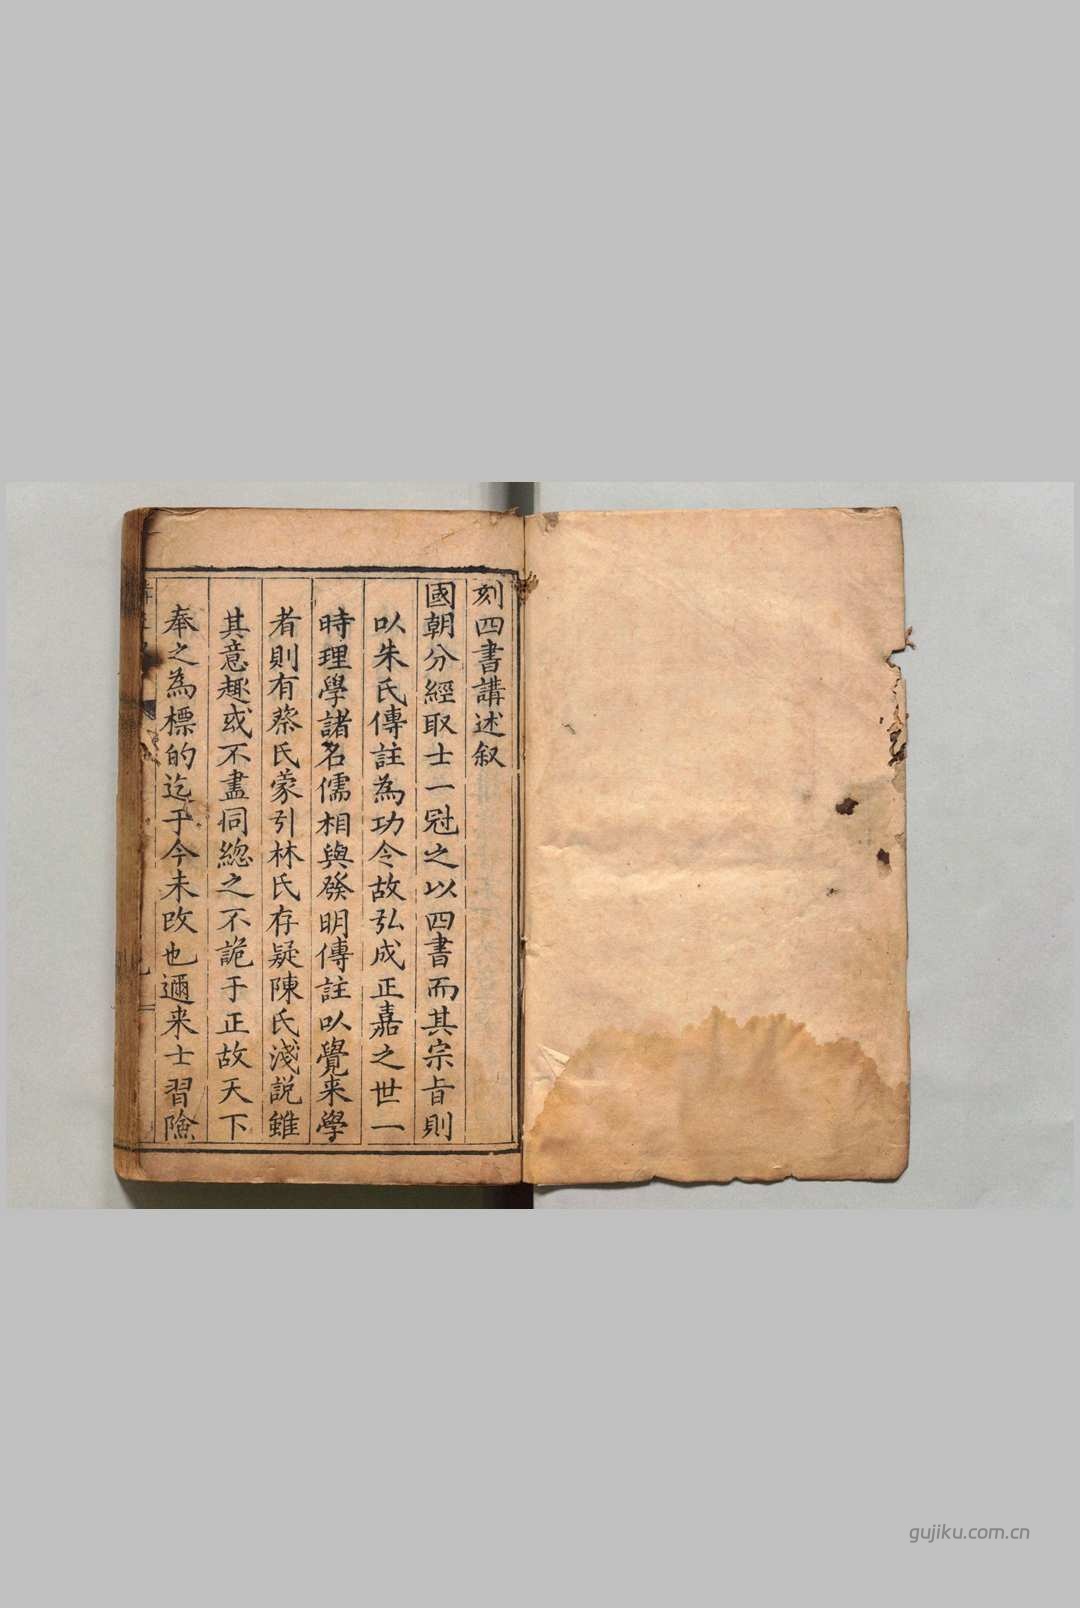 刻四書講述叙
國朝分經取士一冠之以四書而其宗旨則
以朱氏傳註為功令故弘成正嘉之世一
時理學諸名儒相與發明傳註以覺来學
者則有蔡氏蒙引林氏存疑陳氏淺說雖
其意趣或不盡同總之不詭于正故天下
奉之為標的迄于今未改也邇来士習險
gujiku.com.cn